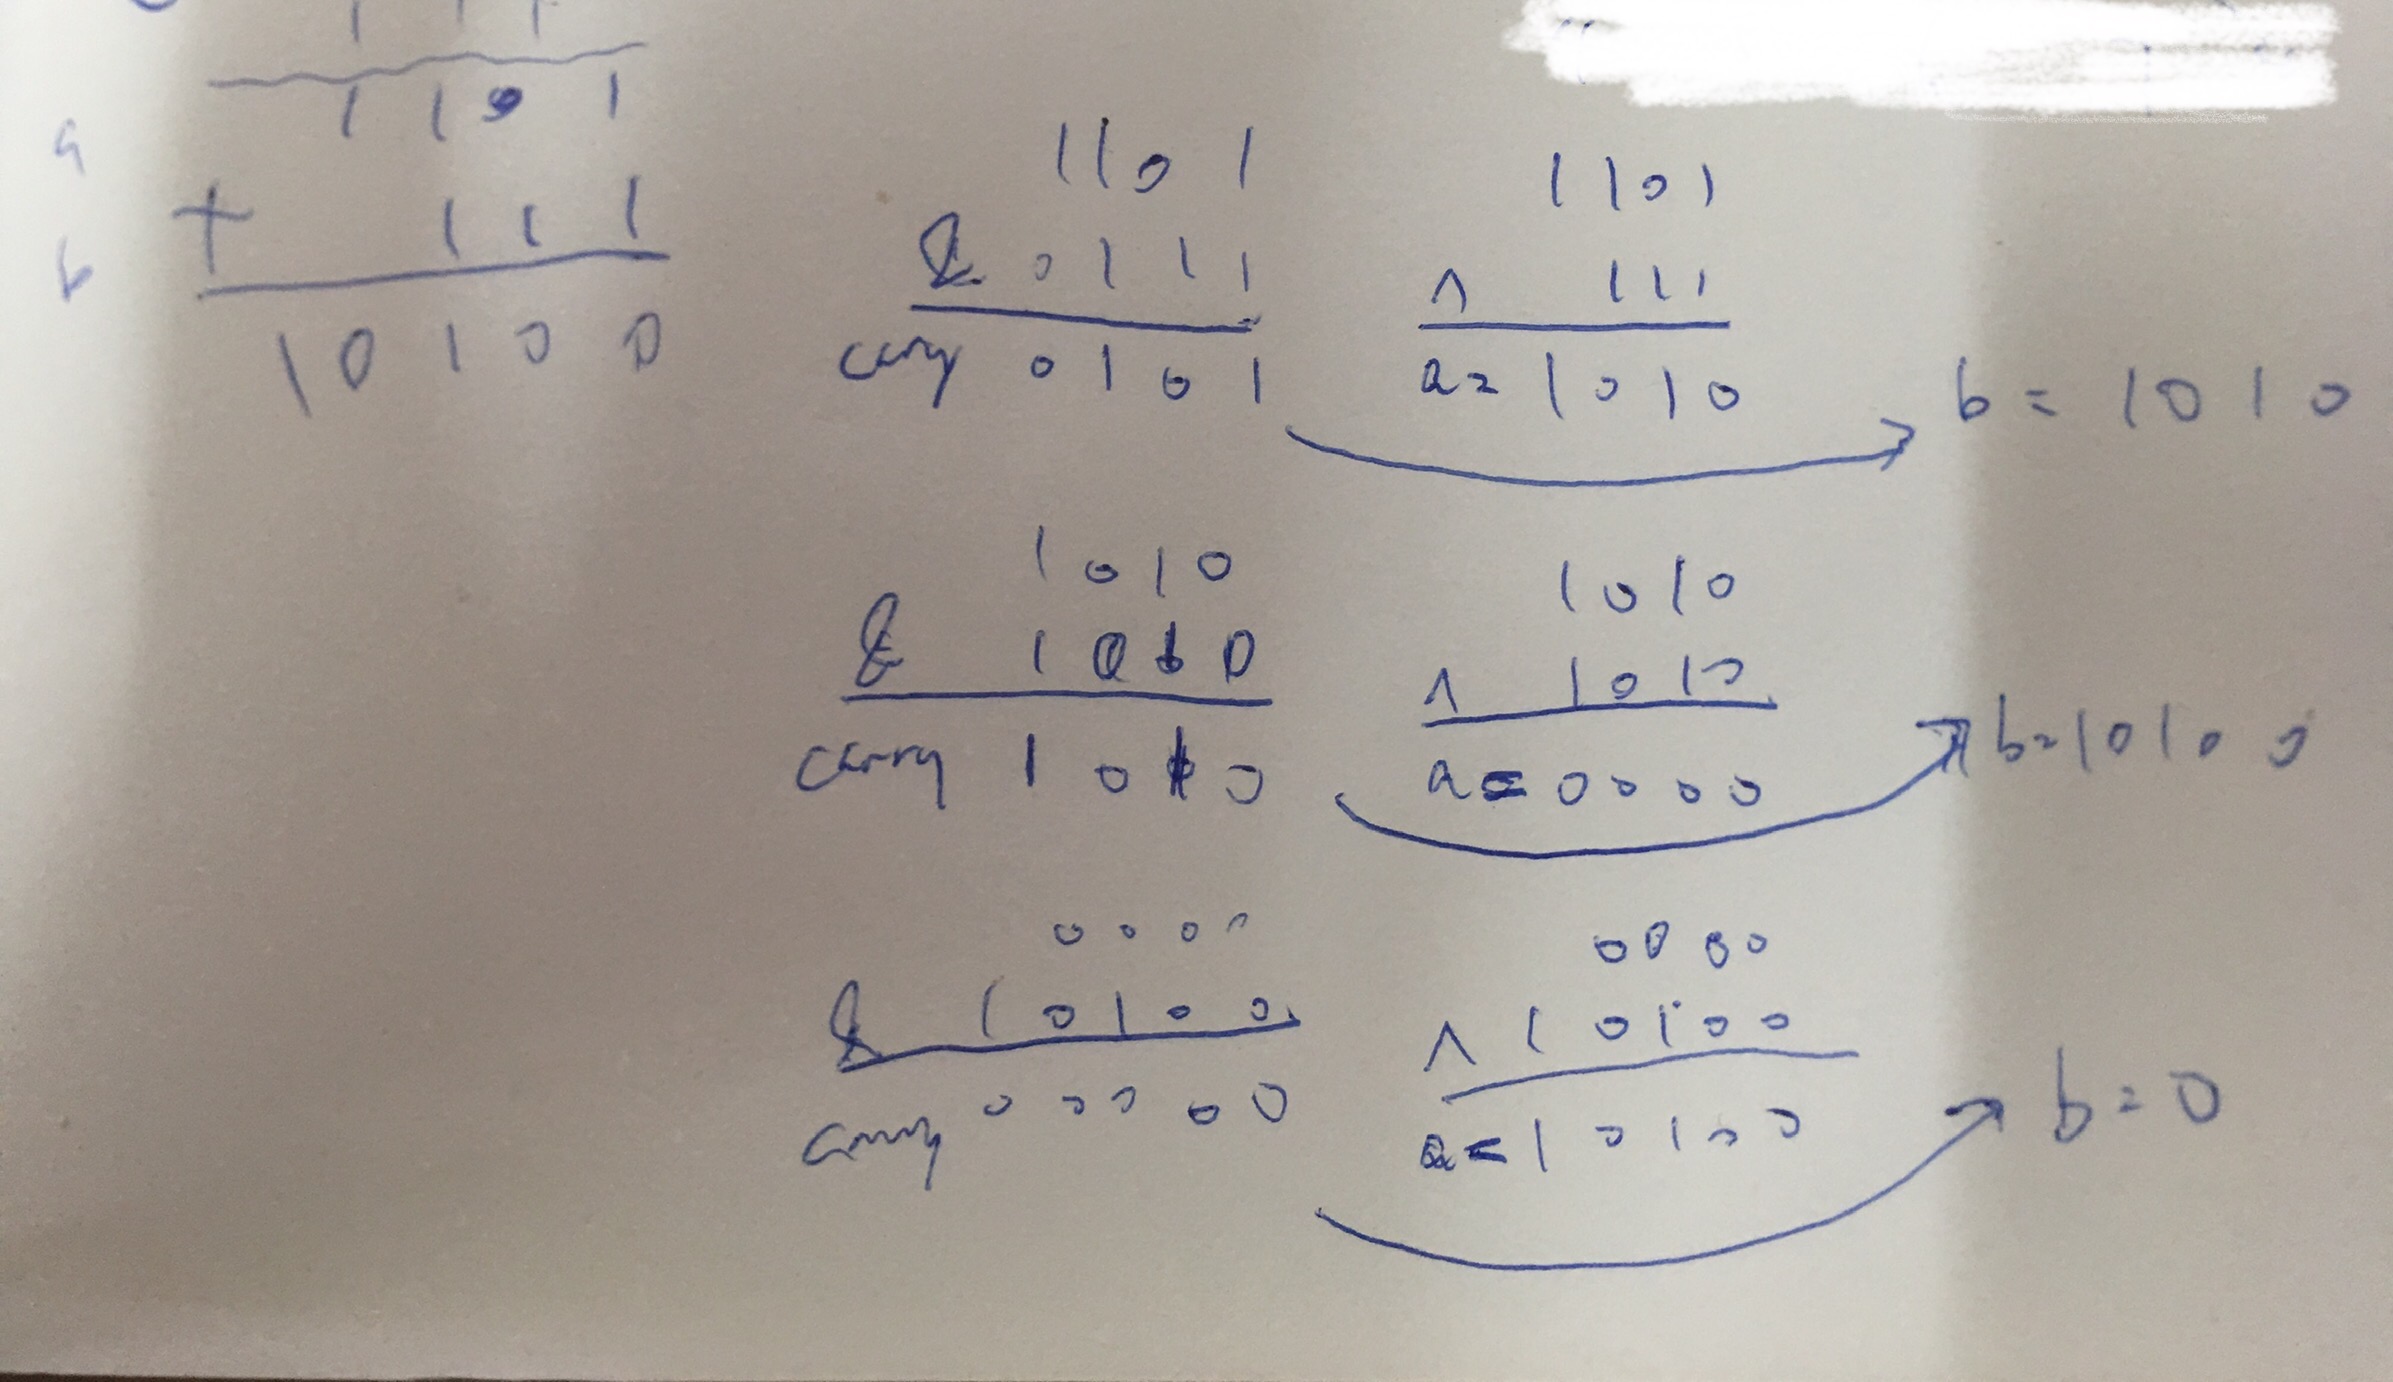 1 1 1
a 1 1 0 1
b + 1 1 1
1 0 1 0 0
1 1 0 1
& 0 1 1 1
carry 0 1 0 1
1 1 0 1
^ 1 1 1
a = 1 0 1 0
b = 1 0 1 0
1 0 1 0
& 1 0 1 0
carry 1 0 1 0
1 0 1 0
^ 1 0 1 0
a = 0 0 0 0
b = 1 0 1 0 0
0 0 0 0
& 1 0 1 0 0
carry 0 0 0 0 0
0 0 0 0
^ 1 0 1 0 0
a = 1 0 1 0 0
b = 0